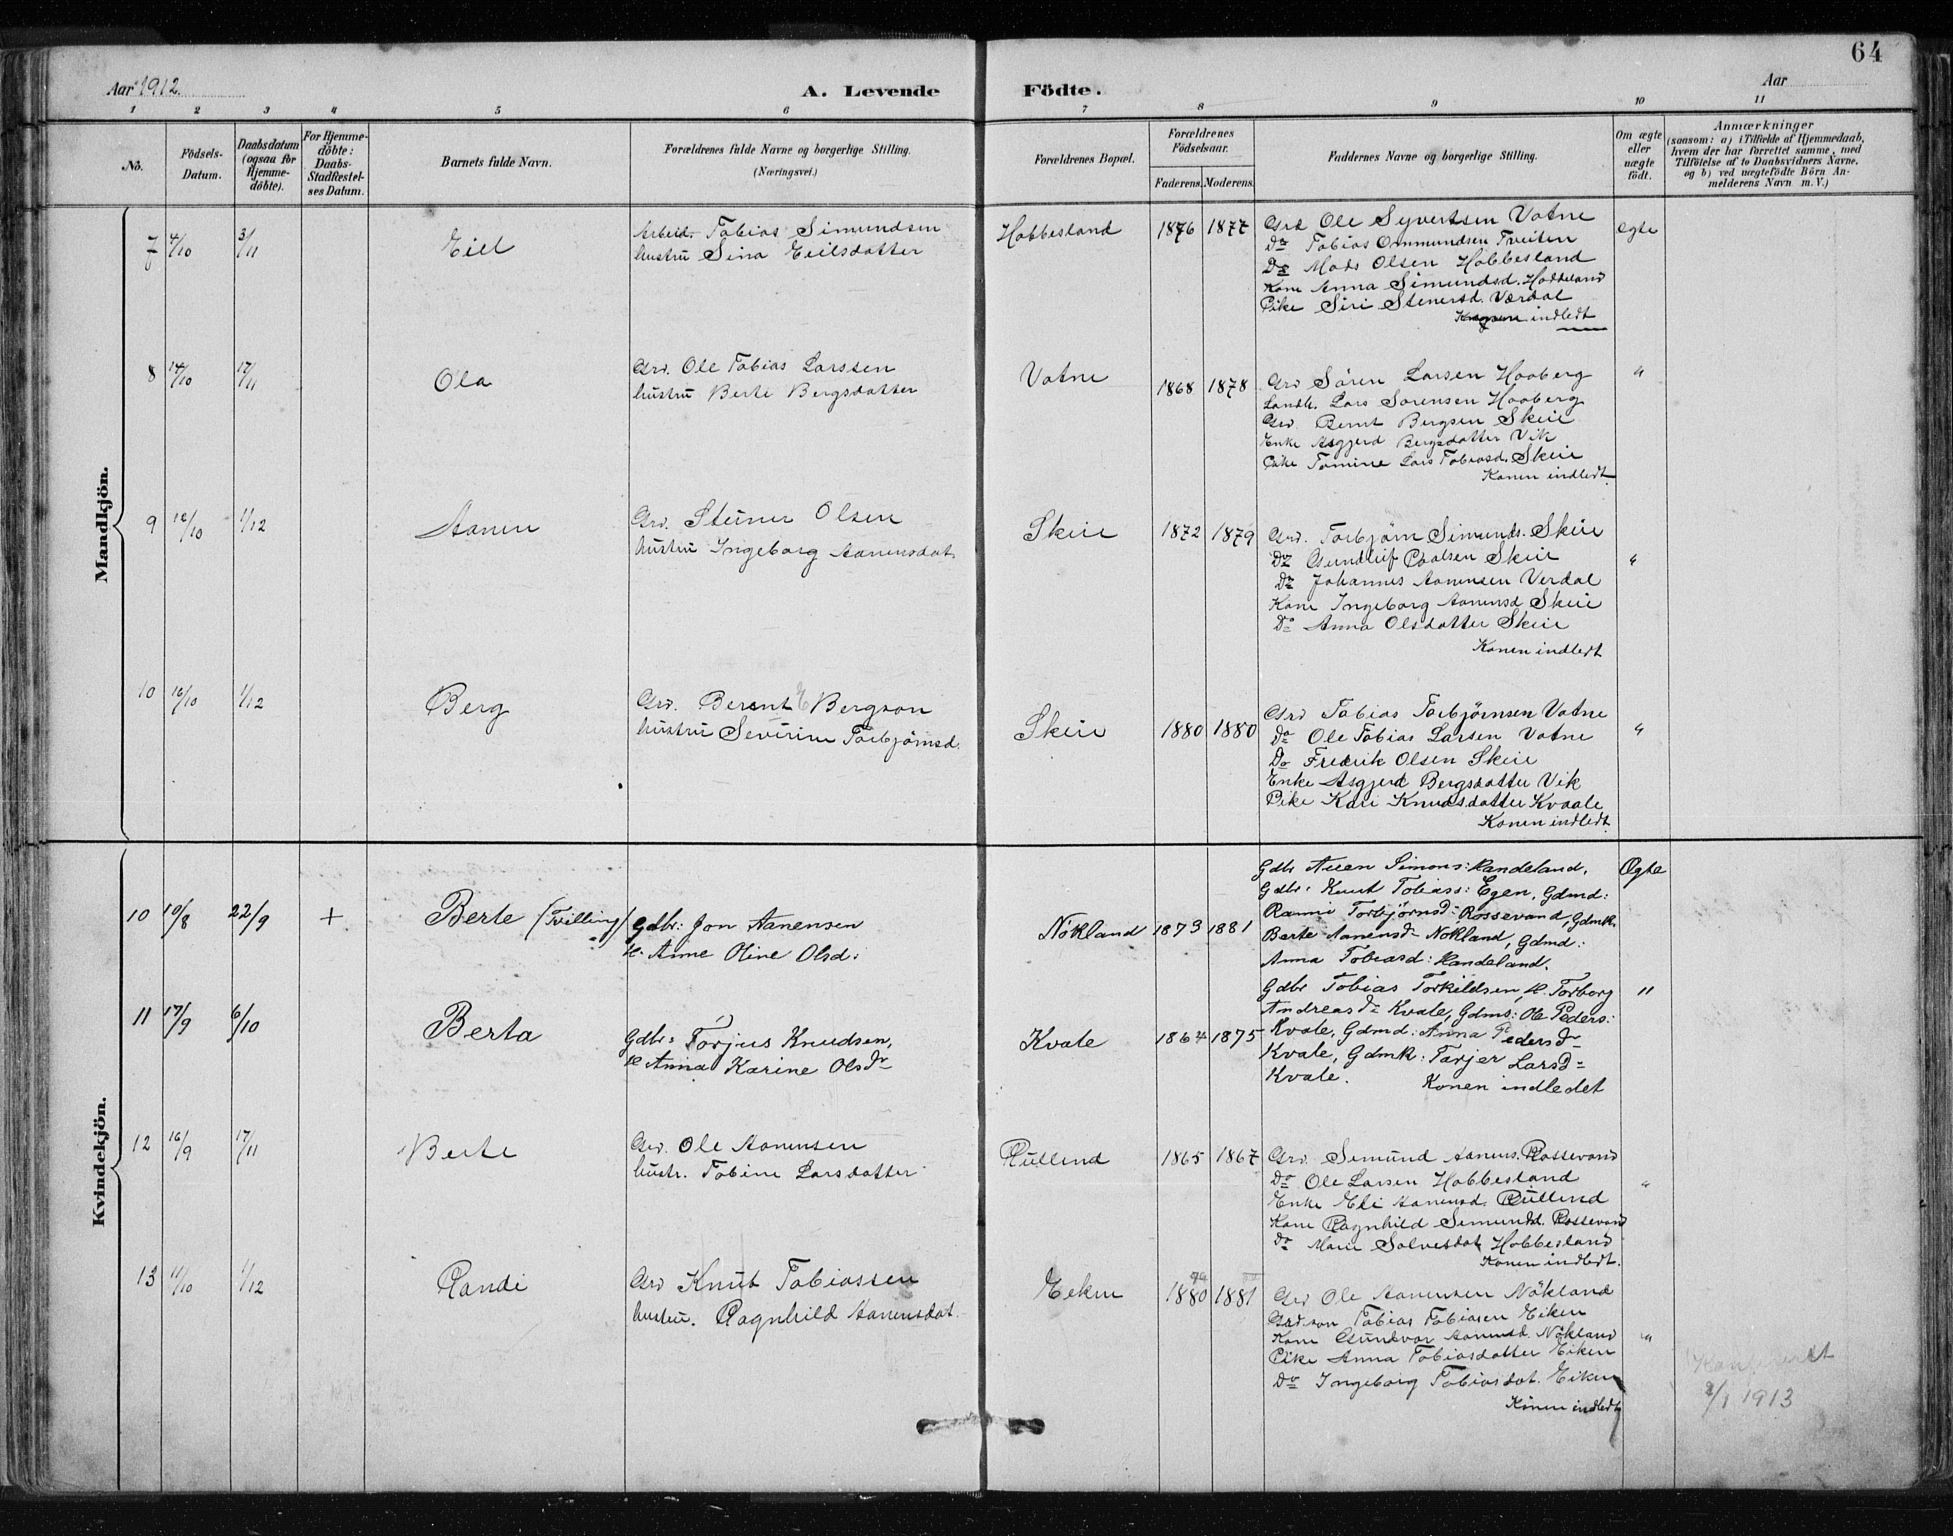 64
Aar 1912. A. Levende Födte. Aar
1 2 3 4 5 6 7 8 9 10 11
No. Födsels-Datum. Daabsdatum (ogsaa för Hjemmedöbte). For Hjemmedöbte: Daabs-Stadfæstelses Datum. Barnets fulde Navn. Forældrenes fulde Navne og borgerlige Stilling. (Næringsvei.) Forældrenes Bopæl. Forældrenes Födselsaar. Faderens. Moderens. Faddernes Navne og borgerlige Stilling. Om ægte eller uægte födt. Anmærkninger (saasom: a) i Tilfælde af Hjemmedaab, hvem der har forrettet samme, med Tilföielse af to Daabsvidners Navne, og b) ved uægtefödte Börn Anmelderens Navn m. V.)
Mandkjön.
7 4/10 3/11 Eiel Arbeid. Tobias Simundsen Hobbesland 1876 1877 Grd Ole Syvertsen Votne egte
hustru Sina Eielsdatter Do Tobias Ommundsen Tveiten
Do Mads Olsen Hobbesland
Kone Anna Simundsd. Hoddeland
Pike Siri Stenersd. Værdal
Konen indledt
8 14/10 17/11 Ola Grd. Ole Tobias Larssen Votne 1868 1878 Grd Sören Larsen Haaberg "
hustru Berte Bergsdatter Landh. Lars Sorensen Haaberg
Grd Bernt Bergsen Skeie
Enke Asgjerd Bergsdatter Vik
Pike Tomine Lars Tobiasd. Skeie
Konen indledt.
9 10/10 1/12 Aanen Grd. Steiner Olsen Skeie 1872 1879 Grd. Torbjörn Simunds. Skeie
hustru Ingeborg Aanensdat. Do Gundleif Paalsen Skeie "
Do Johannes Aanensen Verdal
Kone Ingeborg Aanensd Skeie
Do Anna Olsdatter Skeie
Konen indledt
10 16/10 1/12 Berg Grd. Berent E Bergson Skeie 1880 1880 Grd Tobias Torbjörnsen Votne
hustru Severine Torbjörnsd. Do Ole Tobias Larsen Votne "
Do Fredrik Olsen Skeie
Enke Asgjerd Bergsdatter Vik
Pike Kari Knudsdatter Kvaale
Konen indledt.
Kvindekjön.
10 10/8 22/9 + Berte (Tvilling) Gdbr: Jon Aanensen Nökland 1873 1881 Gdbr Auen Simons: Handeland, Ægte
H. Anne Oline Olsd: Gdbr: Knut Tobiass: Egen, Gdmd:
Rannie Torbjörnsd: Rossevand, Gdmk.
Berte Aanensd Nokland, Gdmd:
Anna Tobiasd: Handeland.
11 17/9 6/10 Berta Gdbr: Torjus Knudsen, Kvale 1864 1875 Gdbr Tobias Torkildsen, H. Torborg "
H Anna Karine Olsdr Andreasd Kvale, Gdms: Ole Peders:
Kvale, Gdmd: Anna Pedersdr
Kvale, Gdmk: Tarjer Larsd
Kvale. Konen indledet
12 16/9 17/11 Berte Grd. Ole Aanensen Rullend 1865 1867 Grd. Semund Aanens. Rossevand
hustr. Tobine Larsdatter Do Ole Larsen Hobbesland "
Enke Eli Aanensd. Rullend
Kone Ragnhild Semundsd. Rossevand
Do Marie Solvesdat Hobbesland
Konen indledt.
13 11/10 1/12 Randi Grd Knut Tobiassen Eeken 1880 1881 Grd Ole Aanensen Nökland
hustru. Ragnhild Aanensdat. Grd. son Tobias Tobiasen Eiken
Kone Gundvor Aanensd. Nökland "
Pike Anna Tobiasdatter Eiken
Do Ingeborg Tobiasdat. Eiken
Konen indledt
1913